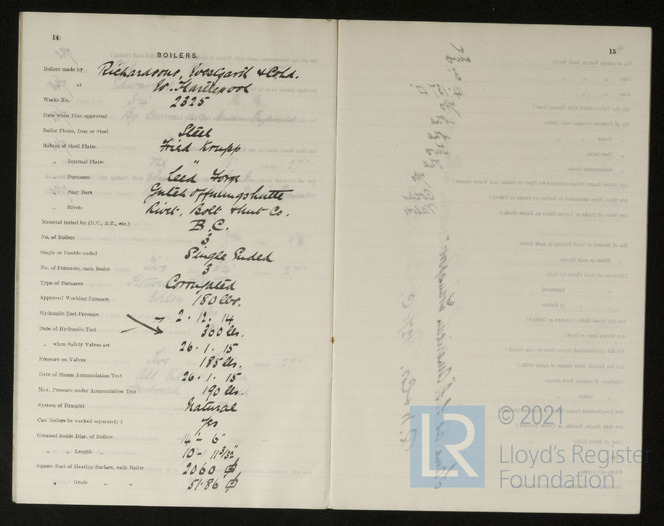 14
BOILERS.
Boilers made by Richardsons, Westgarth & Co Ltd.
at W. Hartlepool
Works No. 2325
Date when Plan approved
Boiler Plates, Iron or Steel Steel
Makers of Shell Plates Fried Krupp
„ Internal Plates "
„ Furnaces Leed Forge
„ Stay Bars Gutehoffnungshutte
„ Rivets Rivet, Bolt & Nut Co.
Material tested by (B.C., B.T., etc.) B.C.
No. of Boilers 3
Single or Double-ended Single Ended
No. of Furnaces, each Boiler 3
Type of Furnaces Corrugated
Approved Working Pressure 180 lbs.
Hydraulic Test Pressure 2. 12. 14
Date of Hydraulic Test 360 lbs.
„ when Safety Valves set 26. 1. 15
Pressure on Valves 185 lbs.
Date of Steam Accumulation Test 26. 1. 15
Max. Pressure under Accumulation Test 190 lbs
System of Draught Natural
Can Boilers be worked separately? Yes
Greatest Inside Diam. of Boilers 6"
„ „ Length 10'-
Square Feet of Heating Surface, each Boiler 2060
„ „ Grate „ „ 51.86
15
LR
© 2021
Lloyd's Register
Foundation